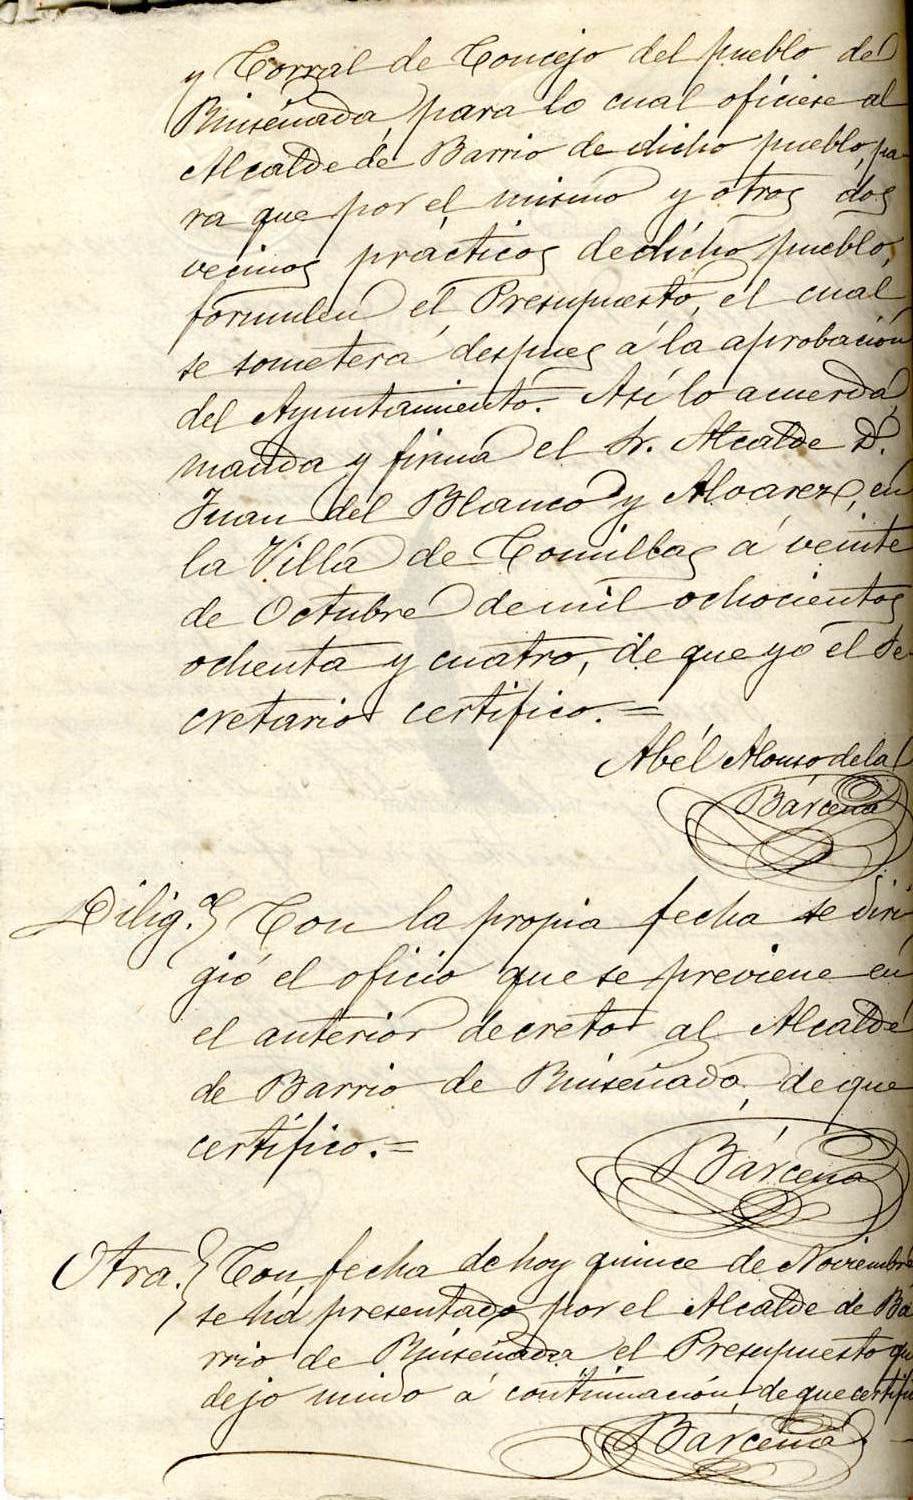 y Corral de Concejo del pueblo de
Ruiseñada, para lo cual ofíciese al
Alcalde de Barrio de dicho pueblo, pa-
ra que por el mismo y otros dos
vecinos prácticos de dicho pueblo,
formulen el Presupuesto, el cual
se someterá despues á la aprobación
del Ayuntamiento. Así lo acuerda,
manda y firma el Sr. Alcalde D.
Juan del Blanco y Alvarez, en
la Villa de Comillas á veinte
de Octubre de mil ochocientos
ochenta y cuatro, de que yo el Se-
cretario certifico.=
Abél Alonso de la
Bárcena
Dilig.ª } Con la propia fecha se diri-
gió el oficio que se previene en
el anterior decreto al Alcalde
de Barrio de Ruiseñada, de que
certifico.=
Bárcena
Otra. } Con fecha de hoy quince de Noviembre
se há presentado por el Alcalde de Ba
rrio de Ruiseñada el Presupuesto qu
dejo unido á continuación de que certifi
Bárcena